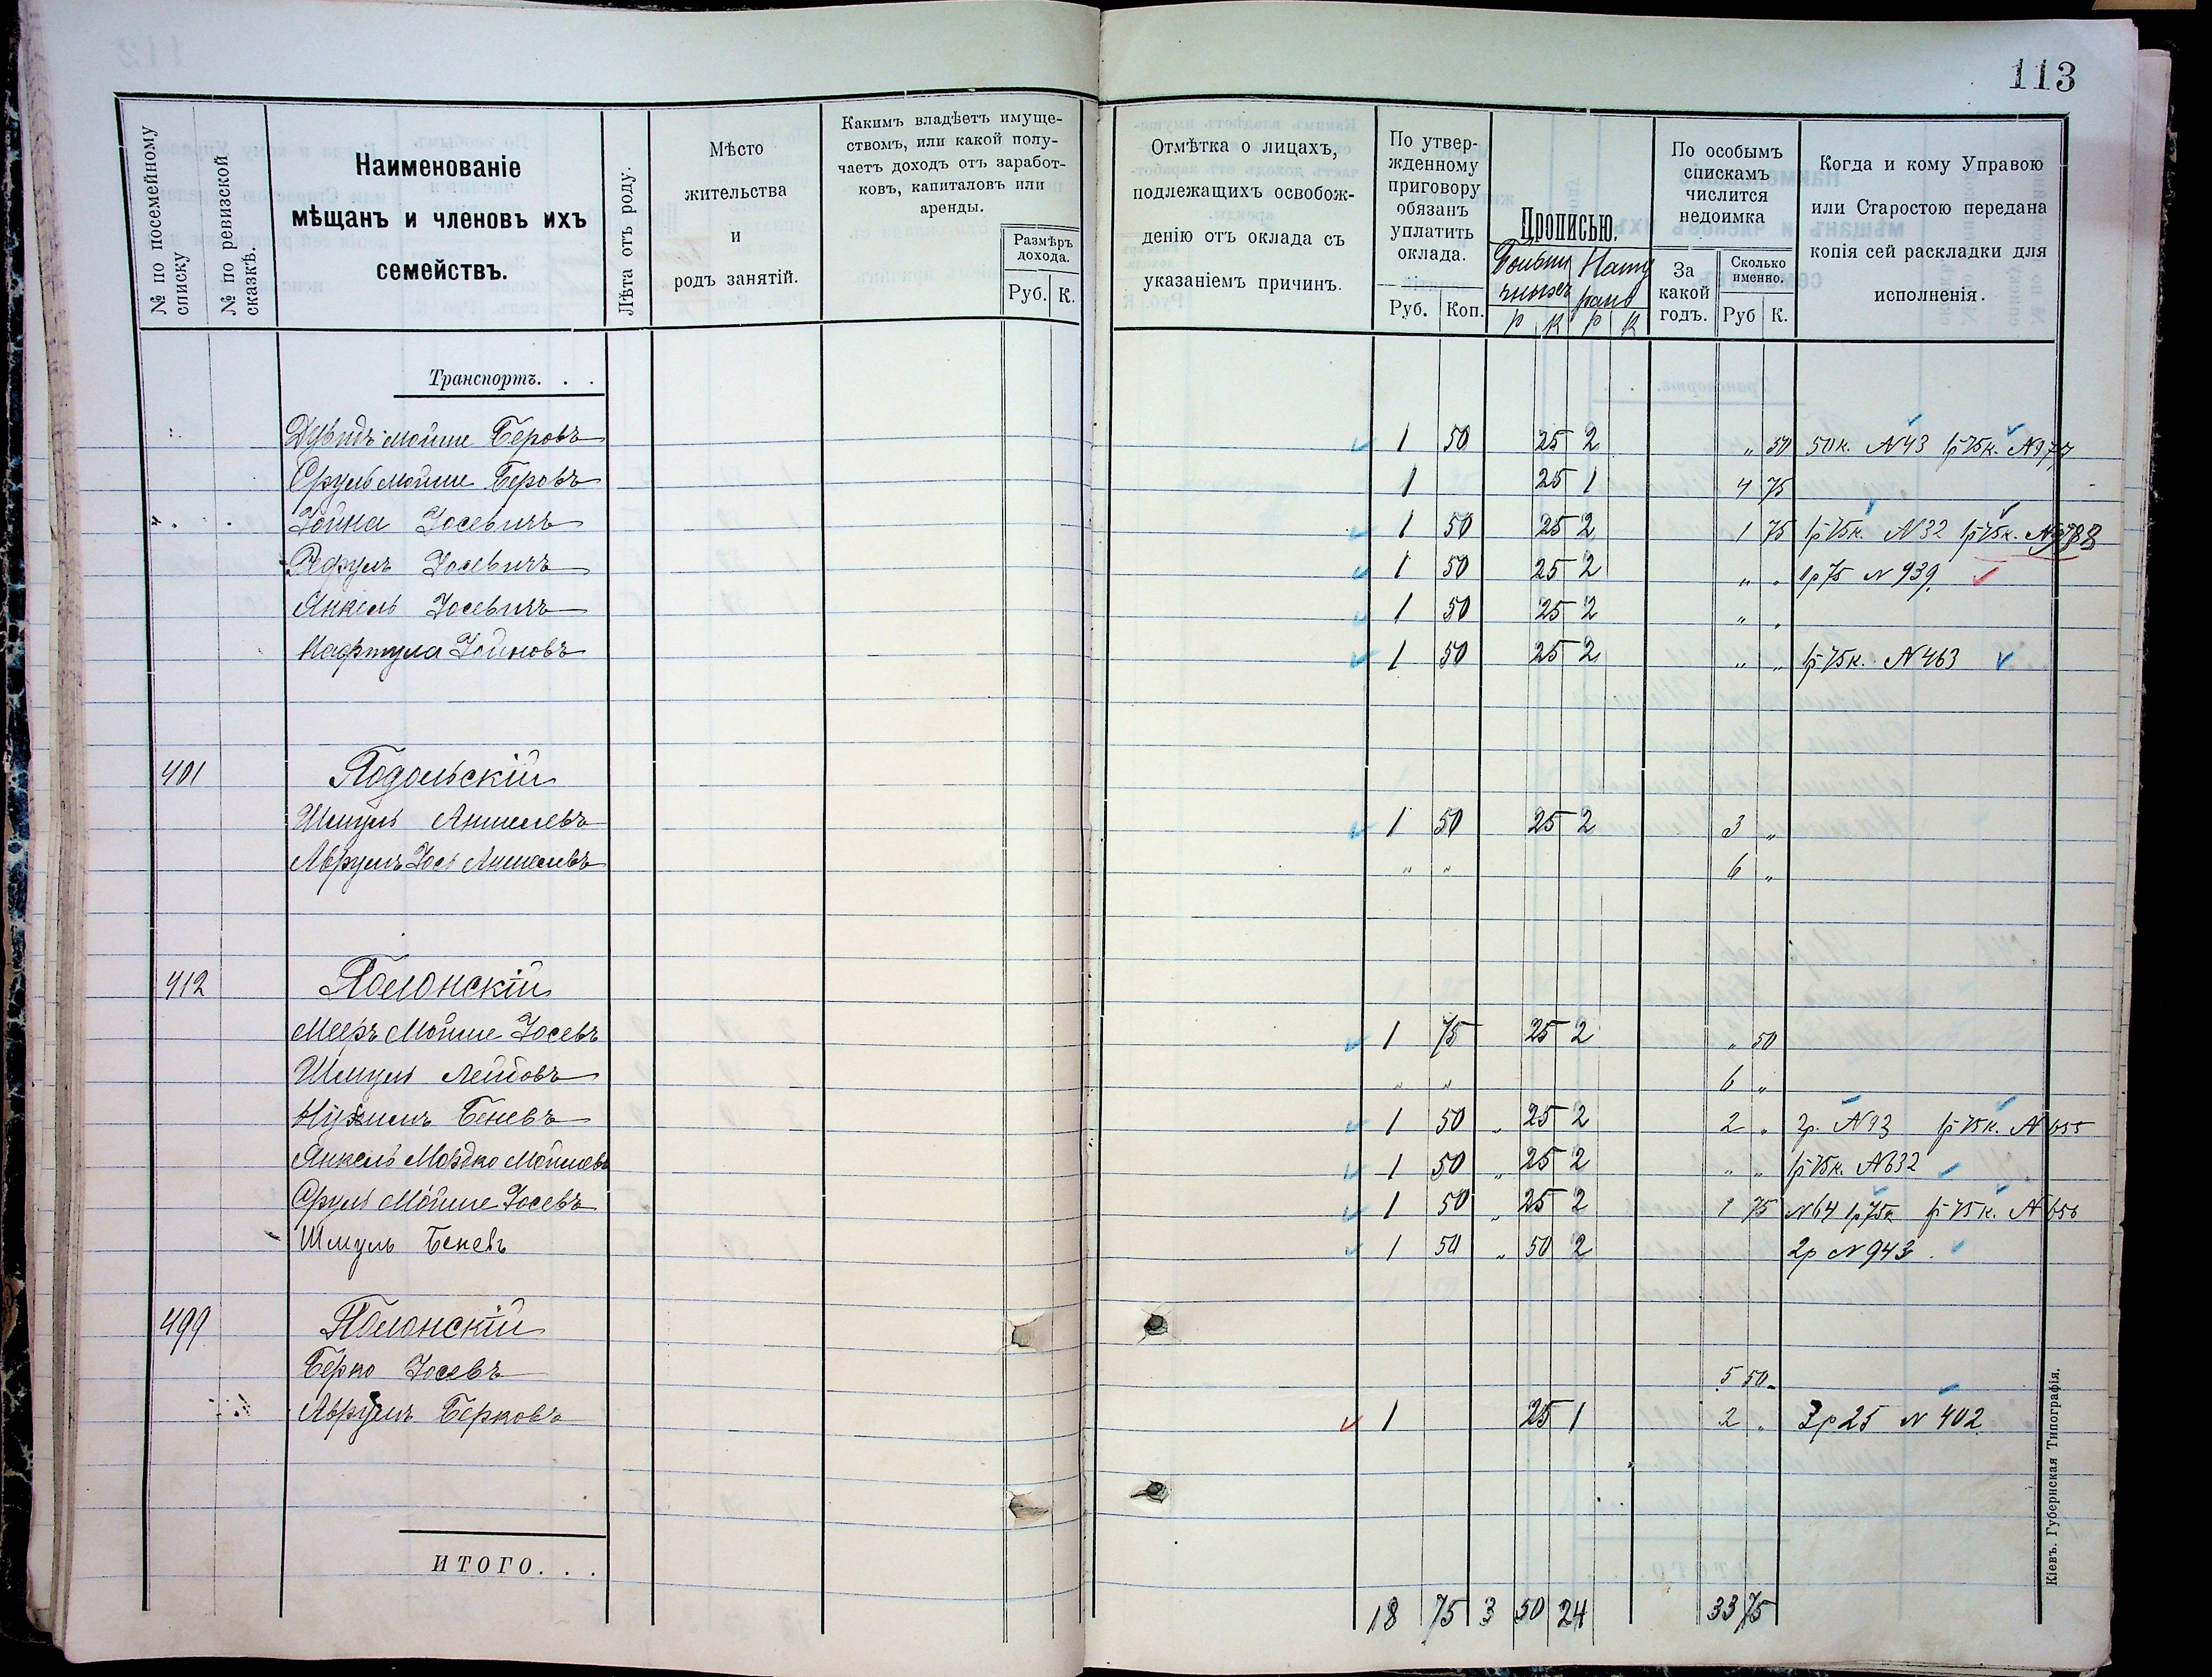 113
№ по посемейному списку
№ по ревизской сказкѣ.
Наименованіе
мѣщанъ и членовъ ихъ
семействъ.
Лѣта отъ роду.
Мѣсто
жительства
и
родъ занятій.
Какимъ владѣетъ имуще-
ствомъ, или какой полу-
чаетъ доходъ отъ заработ-
ковъ, капиталовъ или
аренды.
Размѣръ
дохода.
Руб. К.
Отмѣтка о лицахъ,
подлежащихъ освобож-
денію отъ оклада съ
указаніемъ причинъ.
По утвер-
жденному
приговору
обязанъ
уплатить
оклада.
Руб. Коп.
Прописью.
Р К Р К
По особымъ
спискамъ
числится
недоимка
За
какой
годъ.
Сколько
именно.
Руб К.
Когда и кому Управою
или Старостою передана
копія сей раскладки для
исполненія.
Транспортъ. . .
Дувидъ Мойше Беровъ 1 50 25 2 " 50 50к. N43 1р75к. N977
Сруль Мойше Беровъ 1 25 1 4 75
Іойна Іосевичъ 1 50 25 2 1 75 1р75к. N32 1р75к. N988
Іосевичъ 1 50 25 2 " " 1р75 N 939.
Янкель Іосевичъ 1 50 25 2 " "
Нафтула Іойновъ 1 50 25 2 " " 1р75к. N463
401 Подольскій
Шмуль Аншелевъ 1 50 25 2 3 "
Аврумъ Іось Аншелевъ " " 6 "
412 Полонскій
Мееръ Мойше Іосевъ 1 75 25 2 " 50
Шмуль Лейбовъ " " 6 "
Нухимъ Беневъ 1 50 " 25 2 2 " 2р. N93 1р75к. N655
Янкель Мордко Мойшевъ 1 50 " 25 2 " " 1р75к. N632
Сруль Мойше Іосевъ 1 50 " 25 2 1 75 N64 1р75к 1р75к. N656
Шмуль Беневъ 1 50 " 50 2 2р N943.
499 Полонскій
Берко Іосевъ 5 50
Аврумъ Берковъ 1 25 1 2 " 3р25 N 402
ИТОГО. . .
18 75 3 50 24 33 75
Кіевъ. Губернская Типографія.